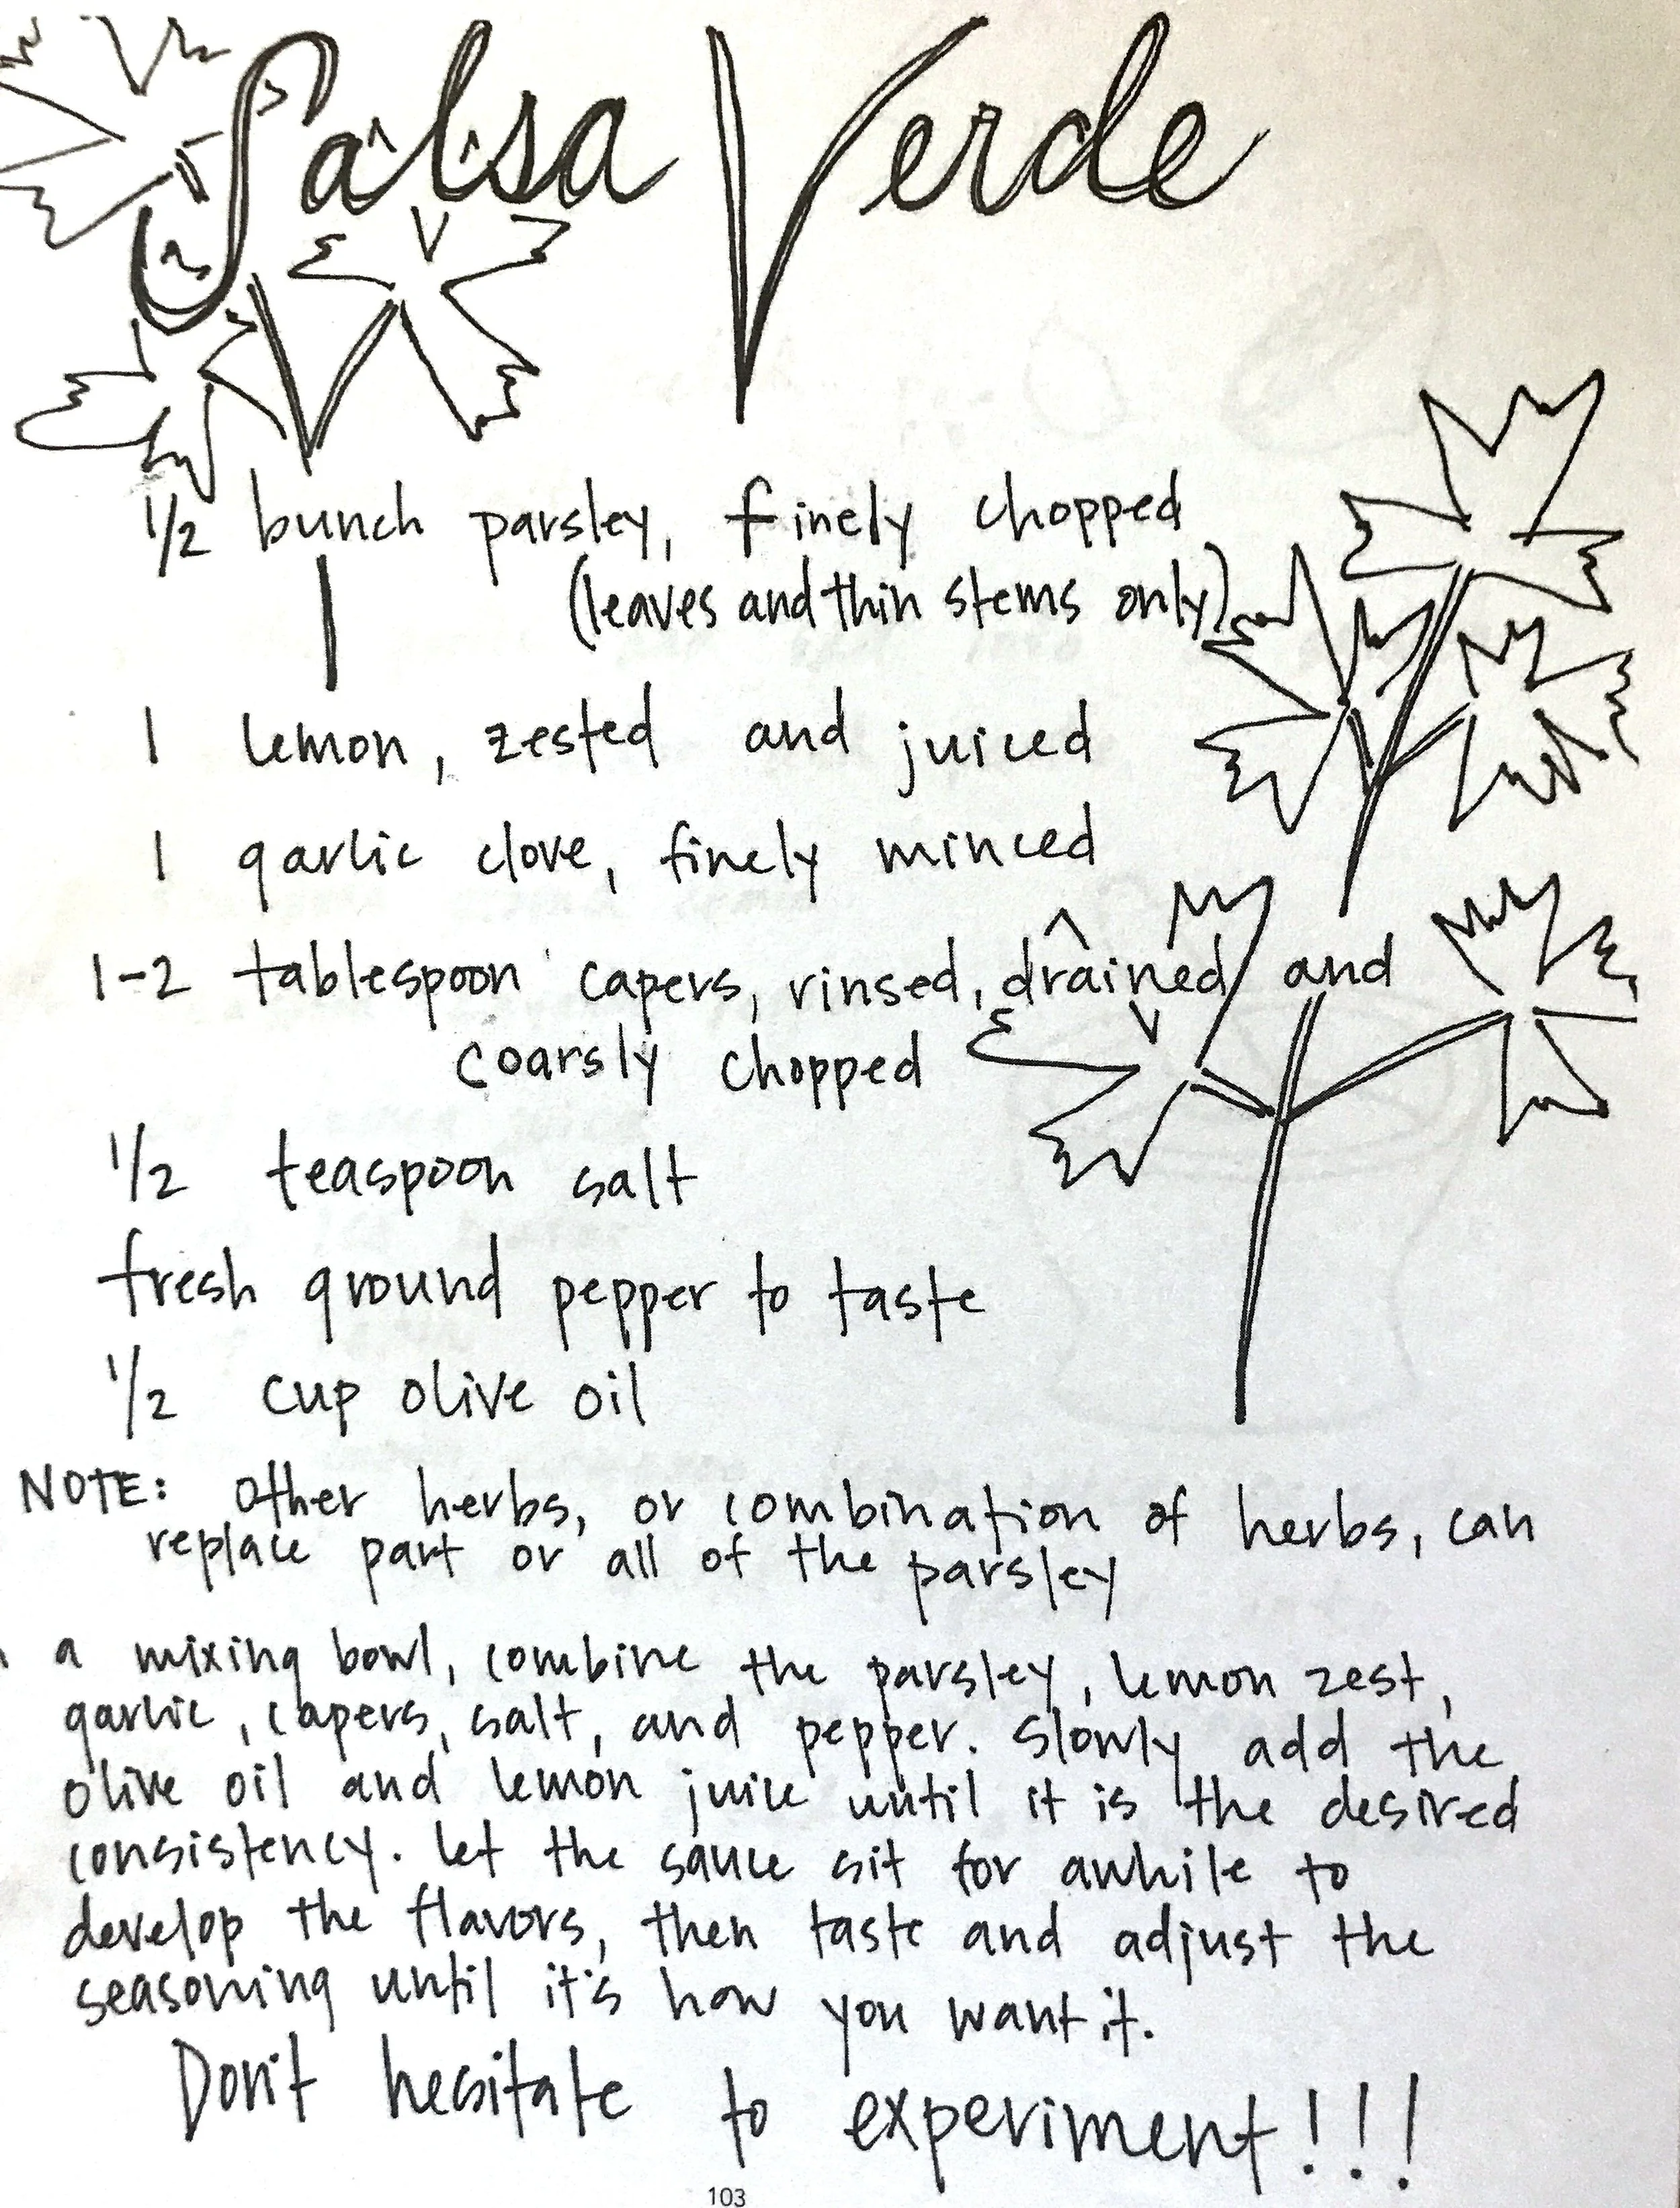 Salsa Verde
1/2 bunch parsley, finely chopped
(leaves and thin stems only)
1 lemon, zested and juiced
1 garlic clove, finely minced
1-2 tablespoon capers, rinsed, drained and
coarsly chopped
1/2 teaspoon salt
fresh ground pepper to taste
1/2 cup olive oil
NOTE: other herbs, or combination of herbs, can
replace part or all of the parsley
a mixing bowl, combine the parsley, lemon zest,
garlic, capers, salt, and pepper. Slowly add the
olive oil and lemon juice until it is the desired
consistency. Let the sauce sit for awhile to
develop the flavors, then taste and adjust the
seasoning until it's how you want it.
Don't hesitate to experiment!!!
103